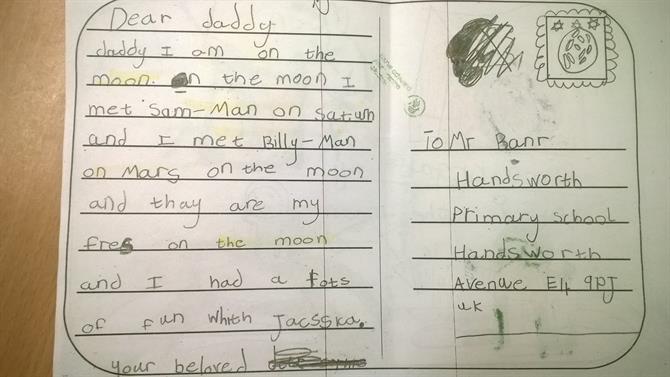 Dear daddy
daddy I am on the
moon. On the moon I
met Sam-Man on Saturn
and I met Billy-Man
on Mars on the moon
and thay are my
fres on the moon
and I had a lots
of fun whith Jacsska.
your beloved
To Mr Banr
Handsworth
Primary school
Handsworth
Avenue E4 9PJ
uk